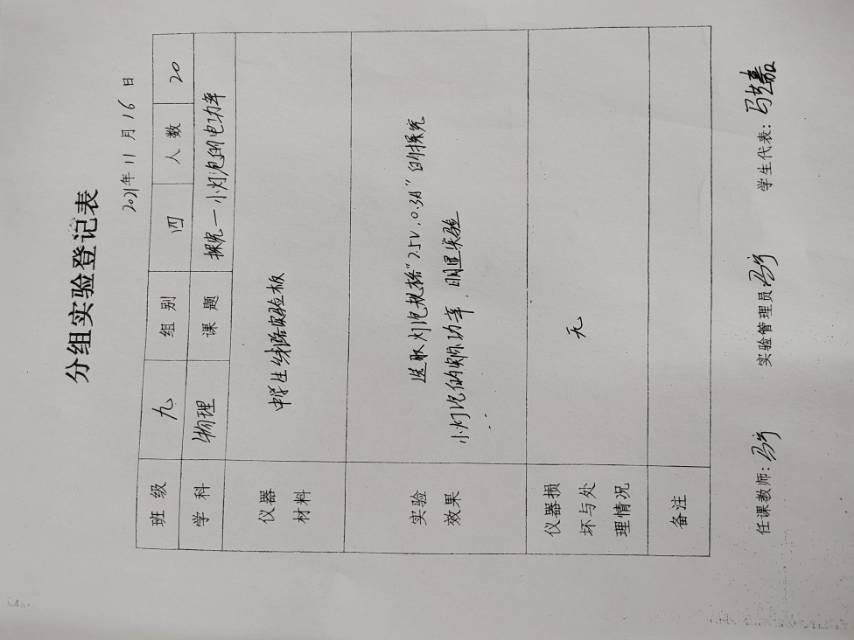 分组实验登记表
2021年11月16日
班级 九 组别 四 人数 20
学科 物理 课题 探究一小灯泡的电功率
仪器
材料
中学生线路实验板
实验
效果
选取灯泡规格“2.5V.0.3A”的探究
小灯泡的实际功率.明显实验
仪器损
坏与处
理情况
无
备注
任课教师: 实验管理员 学生代表: